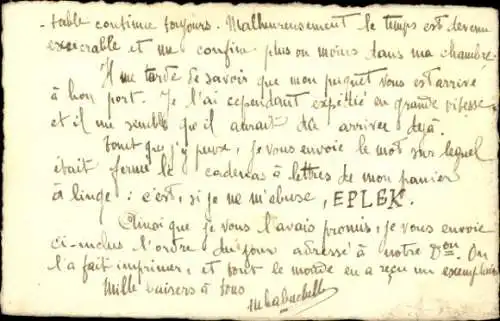 -table continue toujours. Malheureusement le temps est devenu
exécrable et me confine plus ou moins dans ma chambre.
Il me tarde de savoir que mon paquet vous est arrivé
à bon port. Je l'ai cependant expédié en grande vitesse
et il me semble qu'il aurait dû arriver déjà.
Tant que j'y pense, je vous envoie le mot sur lequel
était fermé le cadenas à lettres de mon panier
à linge : c'est, si je ne m'abuse, EPLEK.
Ainsi que je vous l'avais promis, je vous envoie
ci-inclus l'ordre du jour adressé à notre Don. On
l'a fait imprimer, et tout le monde en a reçu un exemplaire
Mille baisers à tous